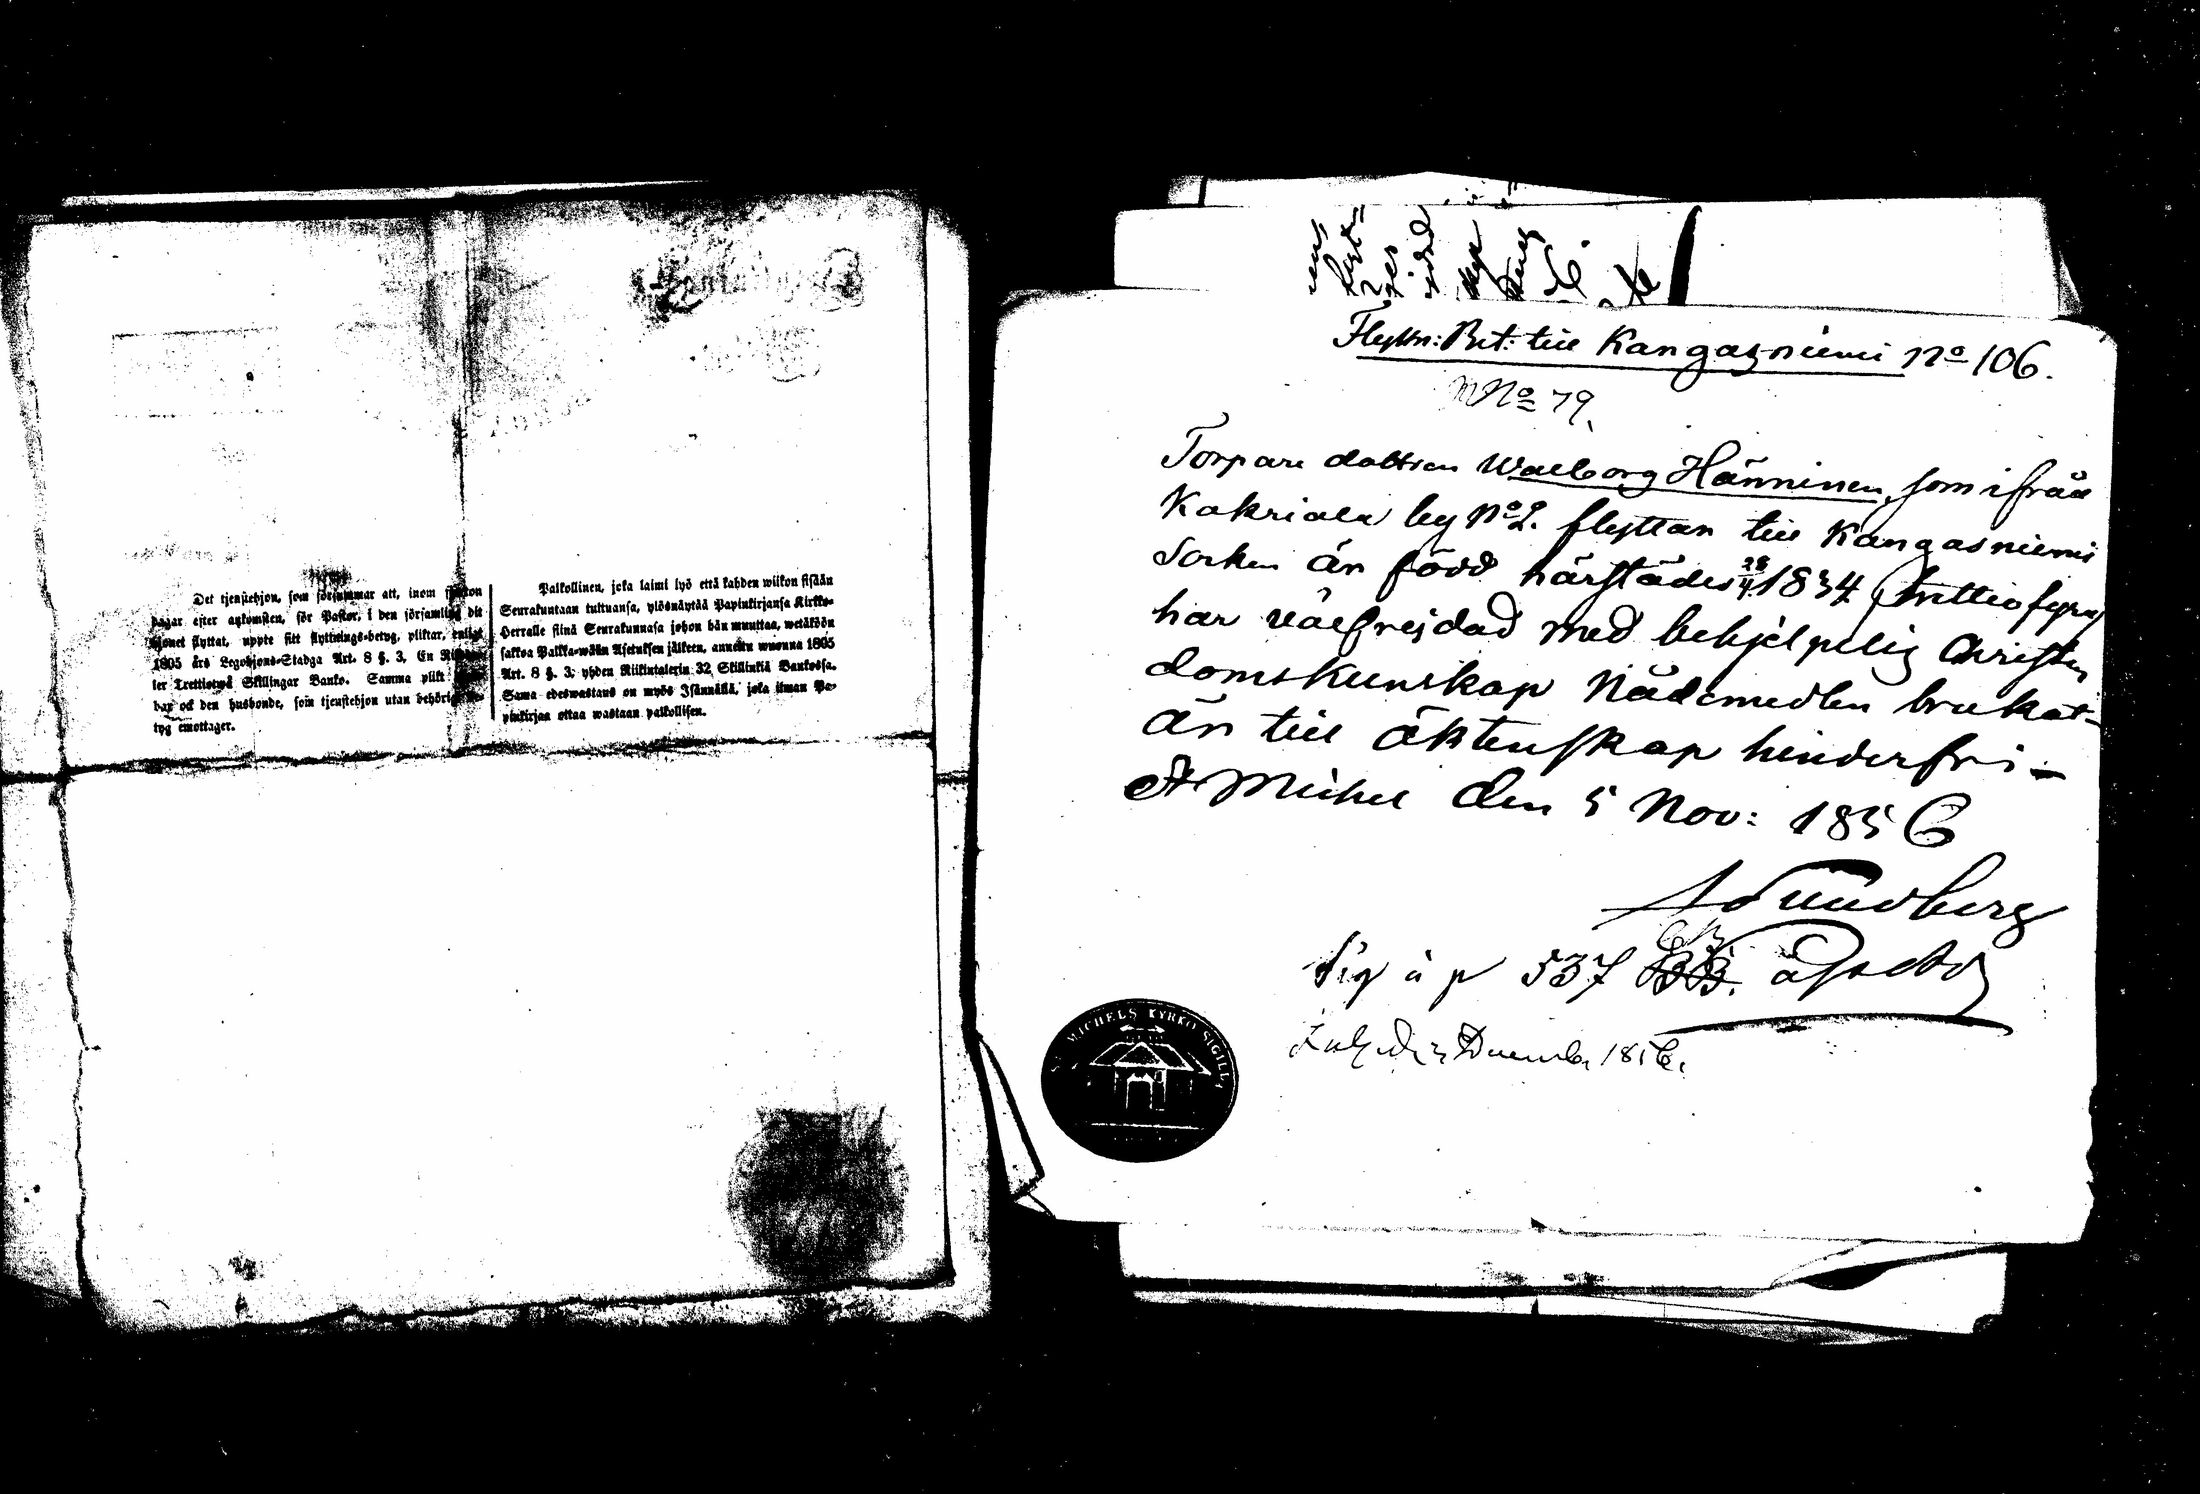 Det tjenstehjon, som försummar att, inom fjorton
dagar efter ankomsten, för Pastor, i den församling dit
hjonet flyttat, uppte sitt flyttnings-betyg, pliktar, enligt
1805 års Legohjons-Stadga Art. 8 §. 3, En Riksda-
ler Trettiotwå Skillingar Banko. Samma plikt
och den husbonde, som tjenstehjon utan behörigt be-
tyg emottager.
Palkollinen, joka laimi lyö että kahden wiikon sisään
Seurakuntaan tultuansa, ylösnäyttää Papinkirjansa Kirkko-
Herralle siinä Seurakunnasa johon hän muuttaa, wetäköön
sakkoa Palkka-wäen Asetuksen jälkeen, annettu wuonna 1805
Art. 8 §. 3; yhden Riikintalerin 32 Skillinkiä Bankossa.
Sama edeswastaus on myös Isännällä, joka ilman Pa-
pinkirjaa ottaa wastaan palkollisen.
Flyttn: Bet: till Kangasniemi No 106.
No 79.
Torpare dottren Walborg Hänninen, som ifrån
Kakriala by No 2. flyttar till Kangasniemi
Socken är född härstädes 1834 (trettiofyra)
har välfrejdad med behjelpelig Christen
domskunskap Nådemedlen brukat-
är till äktenskap hinderfri-
St Michel den 5 Nov: 1856
A Sundberg
Sig å p 537
December 1856.
ST MICHELS KYRKO SIGILL